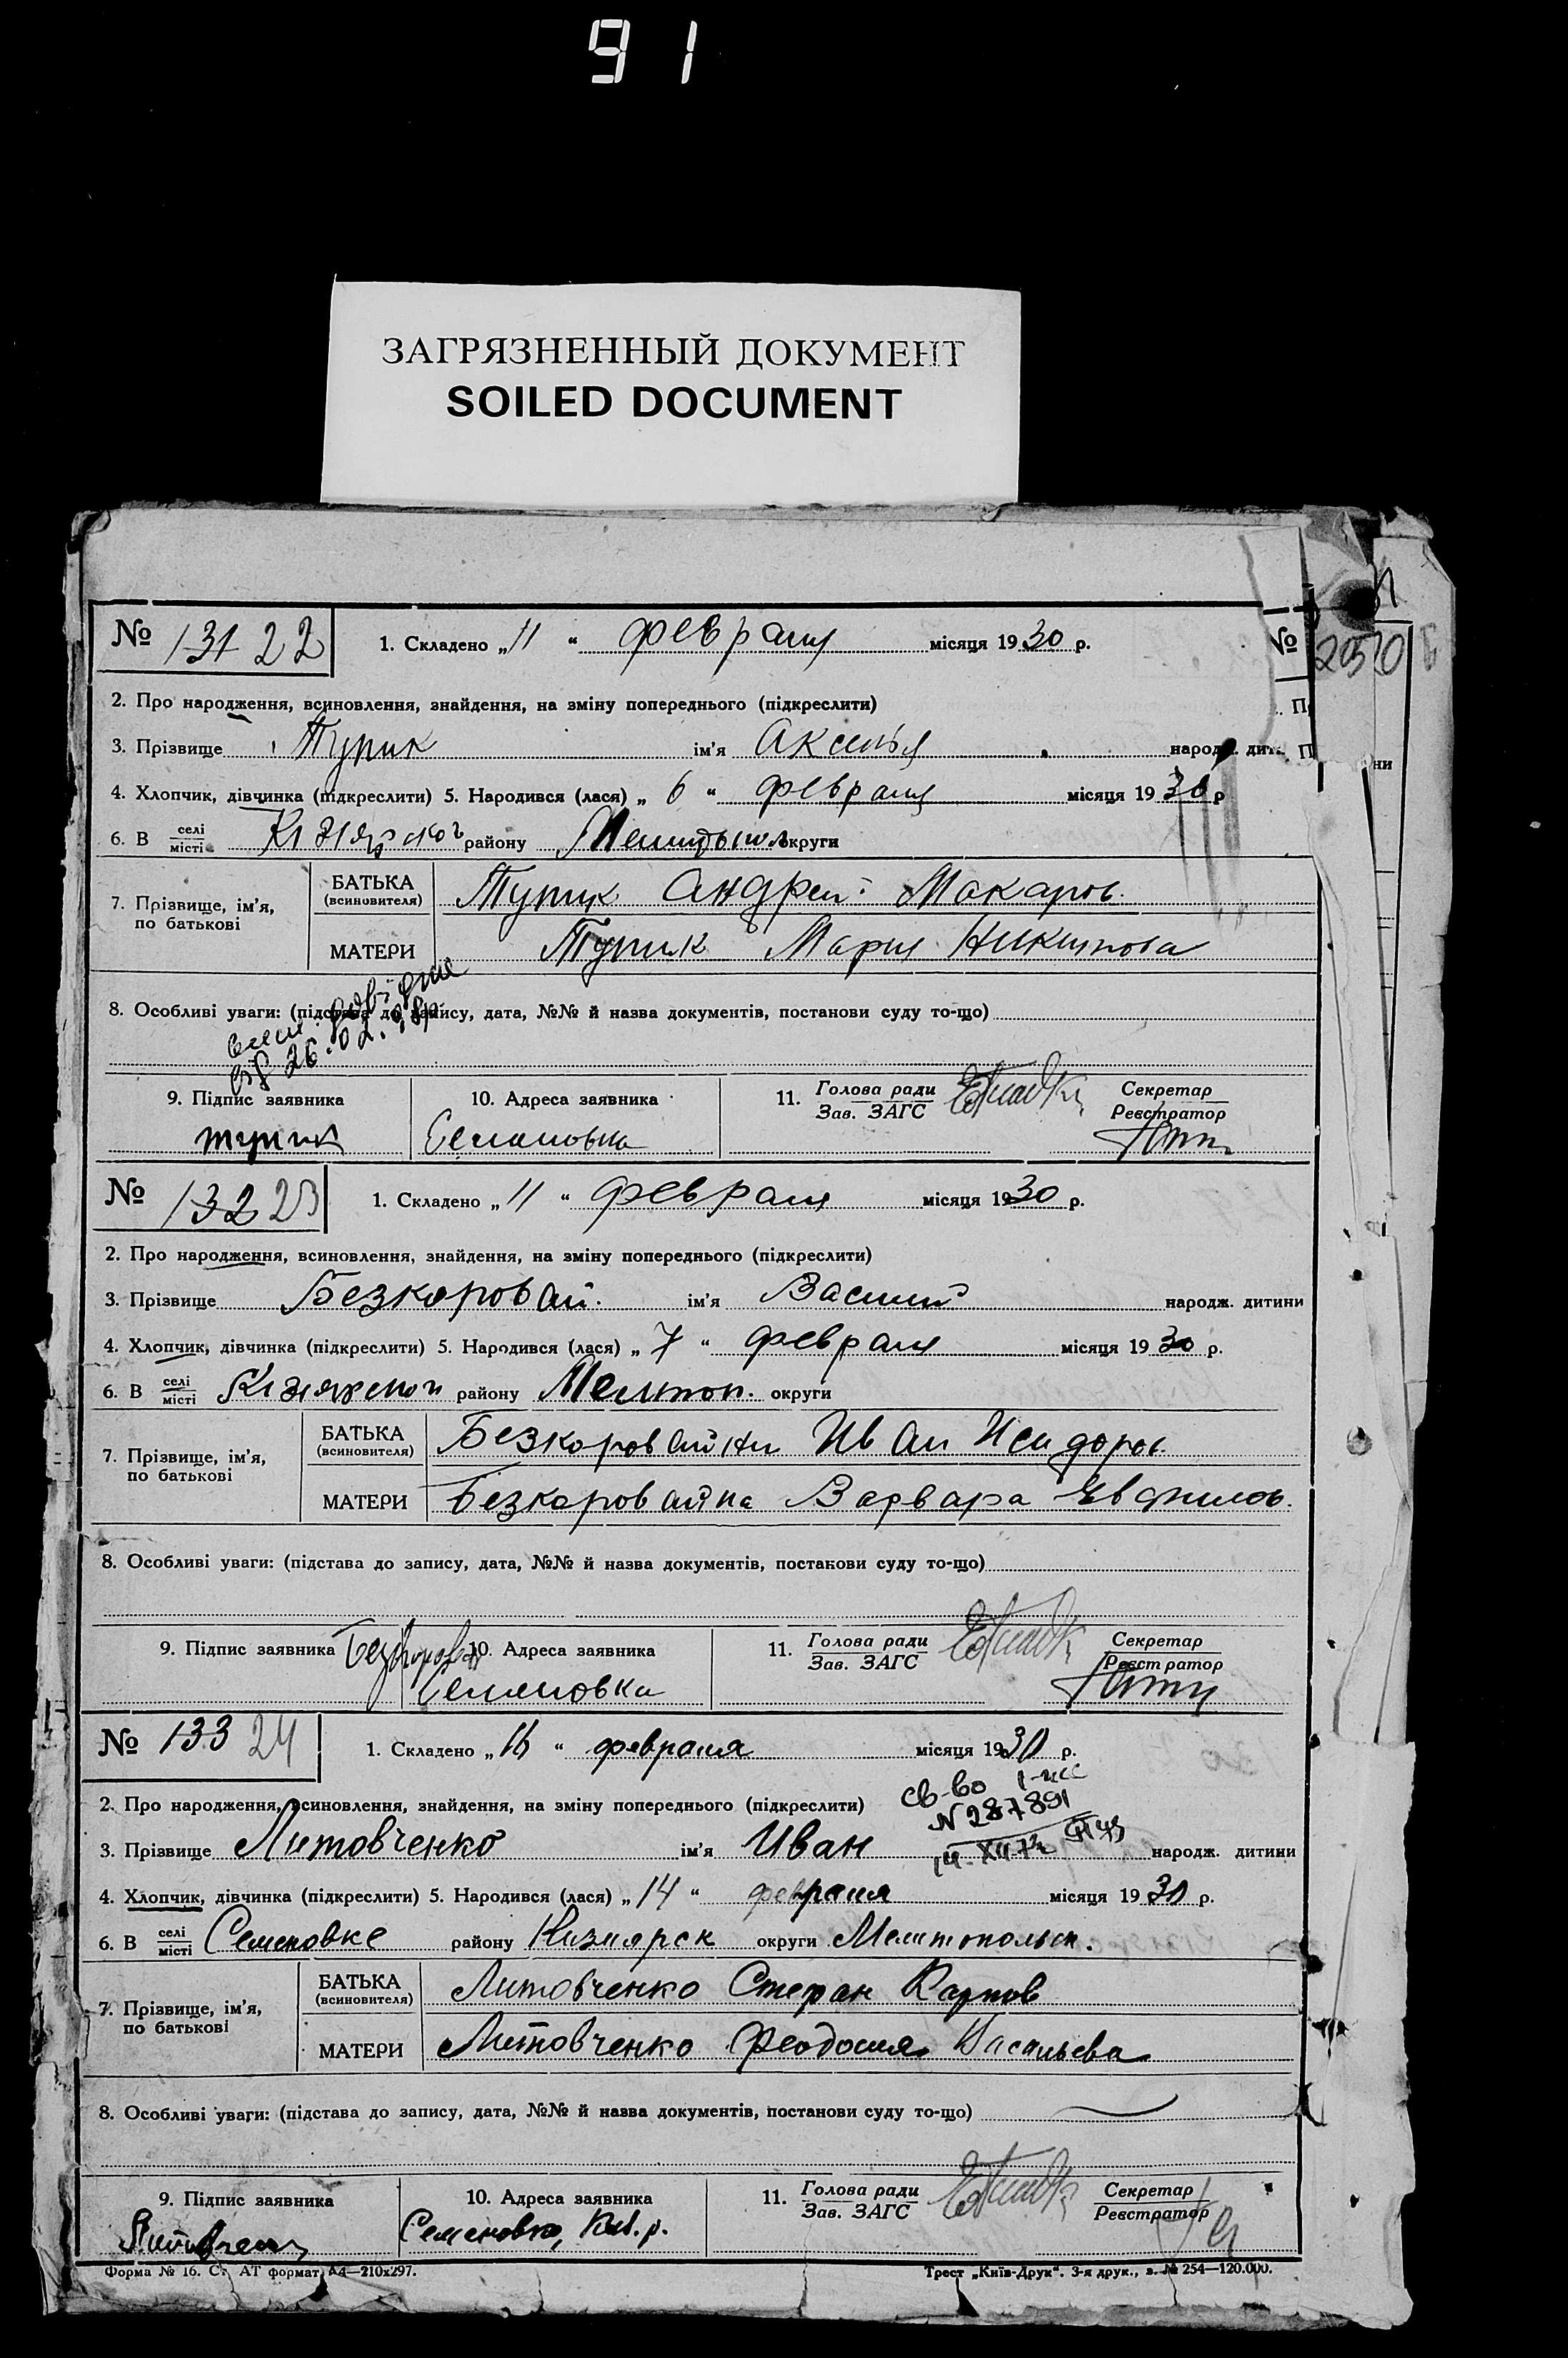 91
ЗАГРЯЗНЕННЫЙ ДОКУМЕНТ
SOILED DOCUMENT
№ 131 22
1. Складено „ 11 “ февраля місяця 1930 р.
№
2530
2. Про народження, всиновлення, знайдення, на зміну попереднього (підкреслити)
3. Прізвище Тупик ім'я Аксенья народж. дит
4. Хлопчик, дівчинка (підкреслити) 5. Народився (лася) „ 6 “ февраля місяця 1930 р
6. В селі місті району округи
7. Прізвище, ім'я, по батькові
БАТЬКА (всиновителя) Тупик Андрей Макаров.
МАТЕРИ Тупик Мария Никитова
8. Особливі уваги: (підстава до запису, дата, №№ й назва документів, постанови суду то-що)
26.02.
9. Підпис заявника 10. Адреса заявника 11. Голова ради Зав. ЗАГС Секретар Реєстратор
тупик Семановка
№ 132 23
1. Складено „ 11 “ февраля місяця 1930 р.
2. Про народження, всиновлення, знайдення, на зміну попереднього (підкреслити)
3. Прізвище Безкоровай. ім'я Василий народж. дитини
4. Хлопчик, дівчинка (підкреслити) 5. Народився (лася) „ 7 “ февраля місяця 1930 р.
6. В селі місті району Мелитоп. округи
7. Прізвище, ім'я, по батькові
БАТЬКА (всиновителя) Безкоровайни Иван Исидоров
МАТЕРИ Безкоровайна Варвара
8. Особливі уваги: (підстава до запису, дата, №№ й назва документів, постанови суду то-що)
9. Підпис заявника 10. Адреса заявника 11. Голова ради Зав. ЗАГС Секретар Реєстратор
Семеновка
№ 133 24
1. Складено „ 16 “ февраля місяця 1930 р.
2. Про народження, всиновлення, знайдення, на зміну попереднього (підкреслити)
св-во
N 287891
3. Прізвище Литовченко ім'я Иван народж. дитини
4. Хлопчик, дівчинка (підкреслити) 5. Народився (лася) „ 14 “ февраля місяця 1930 р.
6. В селі місті Семеновке району Кизиярск округи Мелитопольск.
7. Прізвище, ім'я, по батькові
БАТЬКА (всиновителя) Литовченко Стефан Карпов
МАТЕРИ Литовченко Феодосия Васильева
8. Особливі уваги: (підстава до запису, дата, №№ й назва документів, постанови суду то-що)
9. Підпис заявника 10. Адреса заявника 11. Голова ради Зав. ЗАГС Секретар Реєстратор
Семеновка, Киз. р.
Форма № 16. Ст. АТ формат А4—210х297.
Трест „Київ-Друк“. 3-я друк., з. № 254—120.000.